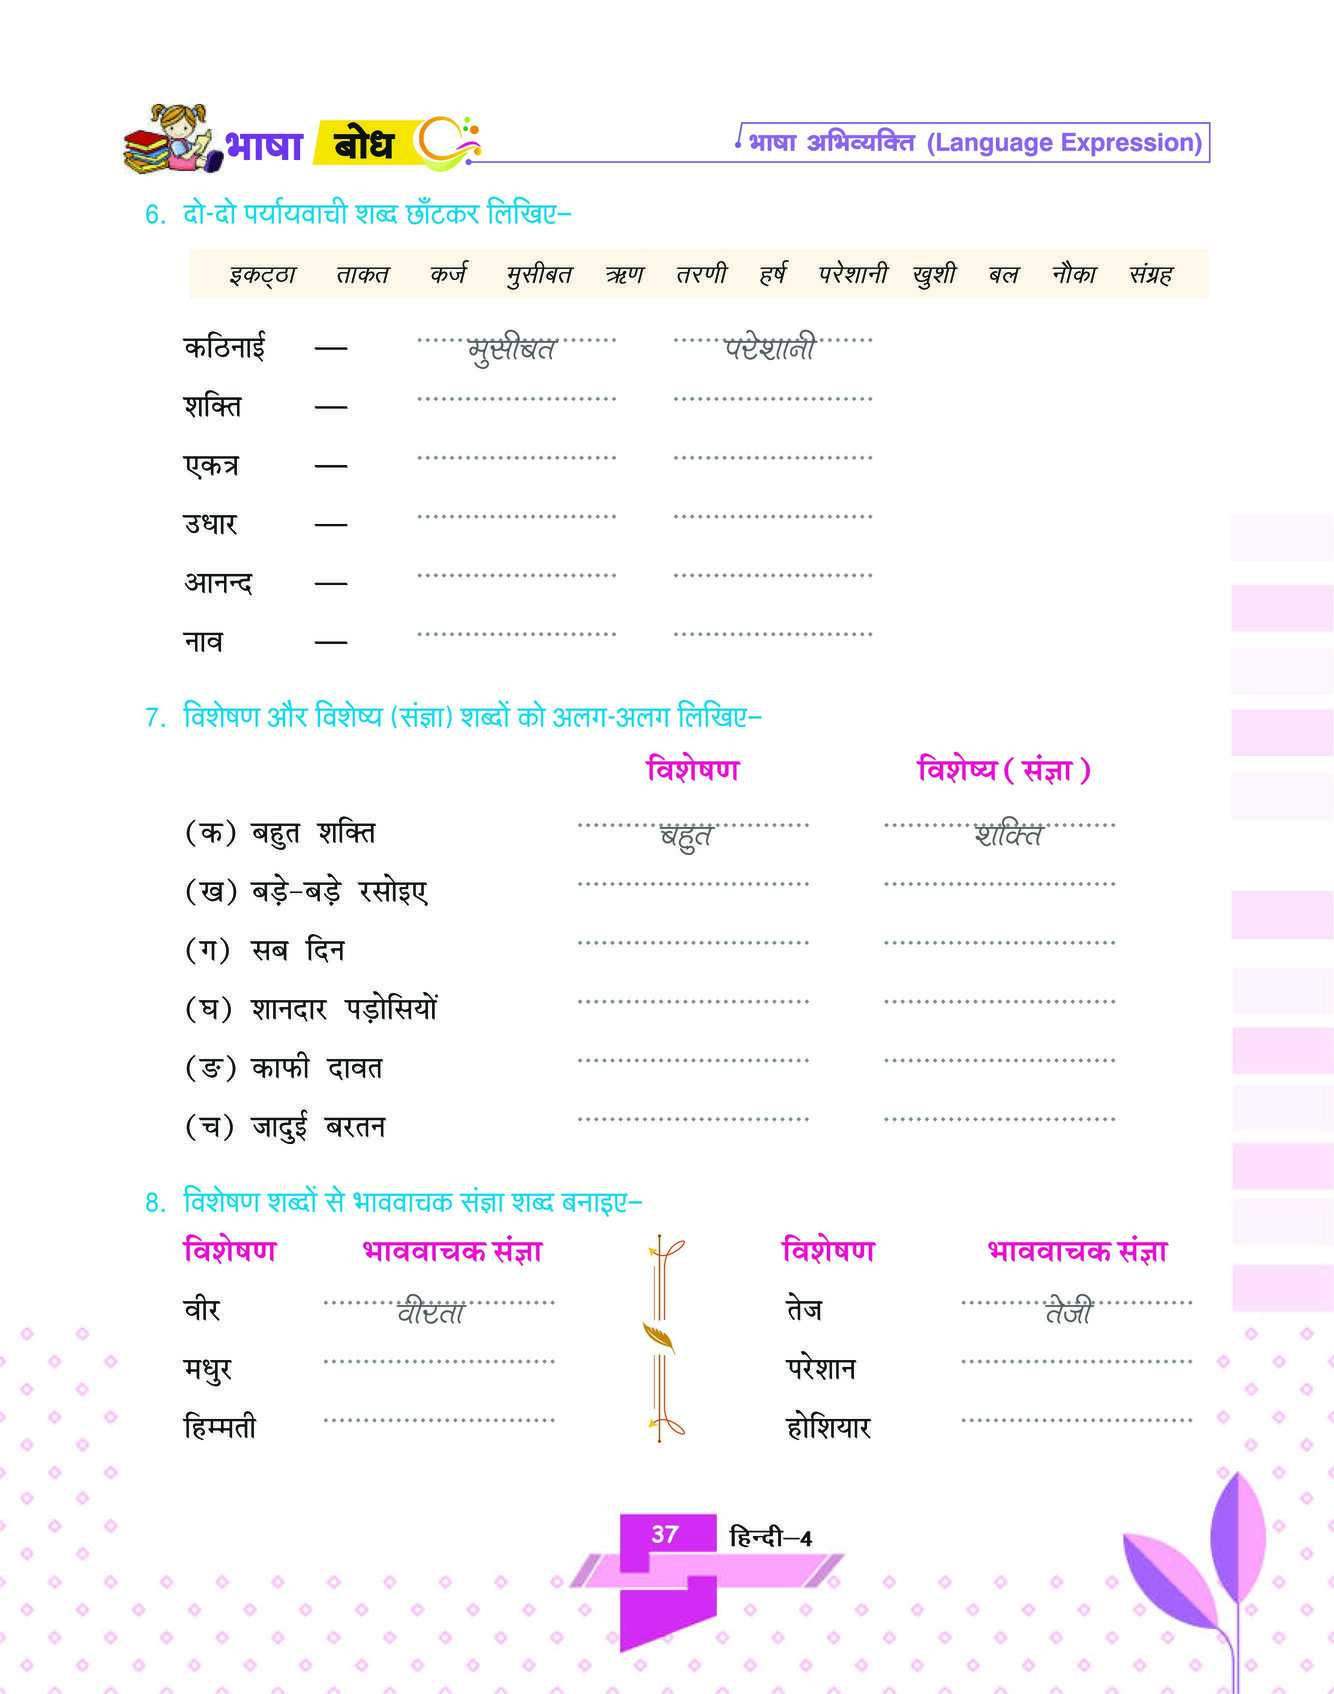 भाषा बोध
भाषा अभिव्यक्ति (Language Expression)
6. दो-दो पर्यायवाची शब्द छाँटकर लिखिए–
इकट्ठा ताकत कर्ज मुसीबत ऋण तरणी हर्ष परेशानी खुशी बल नौका संग्रह
कठिनाई — मुसीबत परेशानी
शक्ति —
एकत्र —
उधार —
आनन्द —
नाव —
7. विशेषण और विशेष्य (संज्ञा) शब्दों को अलग-अलग लिखिए–
विशेषण विशेष्य ( संज्ञा )
(क) बहुत शक्ति बहुत शक्ति
(ख) बड़े–बड़े रसोइए
(ग) सब दिन
(घ) शानदार पड़ोसियों
(ङ) काफी दावत
(च) जादुई बरतन
8. विशेषण शब्दों से भाववाचक संज्ञा शब्द बनाइए–
विशेषण भाववाचक संज्ञा विशेषण भाववाचक संज्ञा
वीर वीरता तेज तेजी
मधुर परेशान
हिम्मती होशियार
37 हिन्दी–4